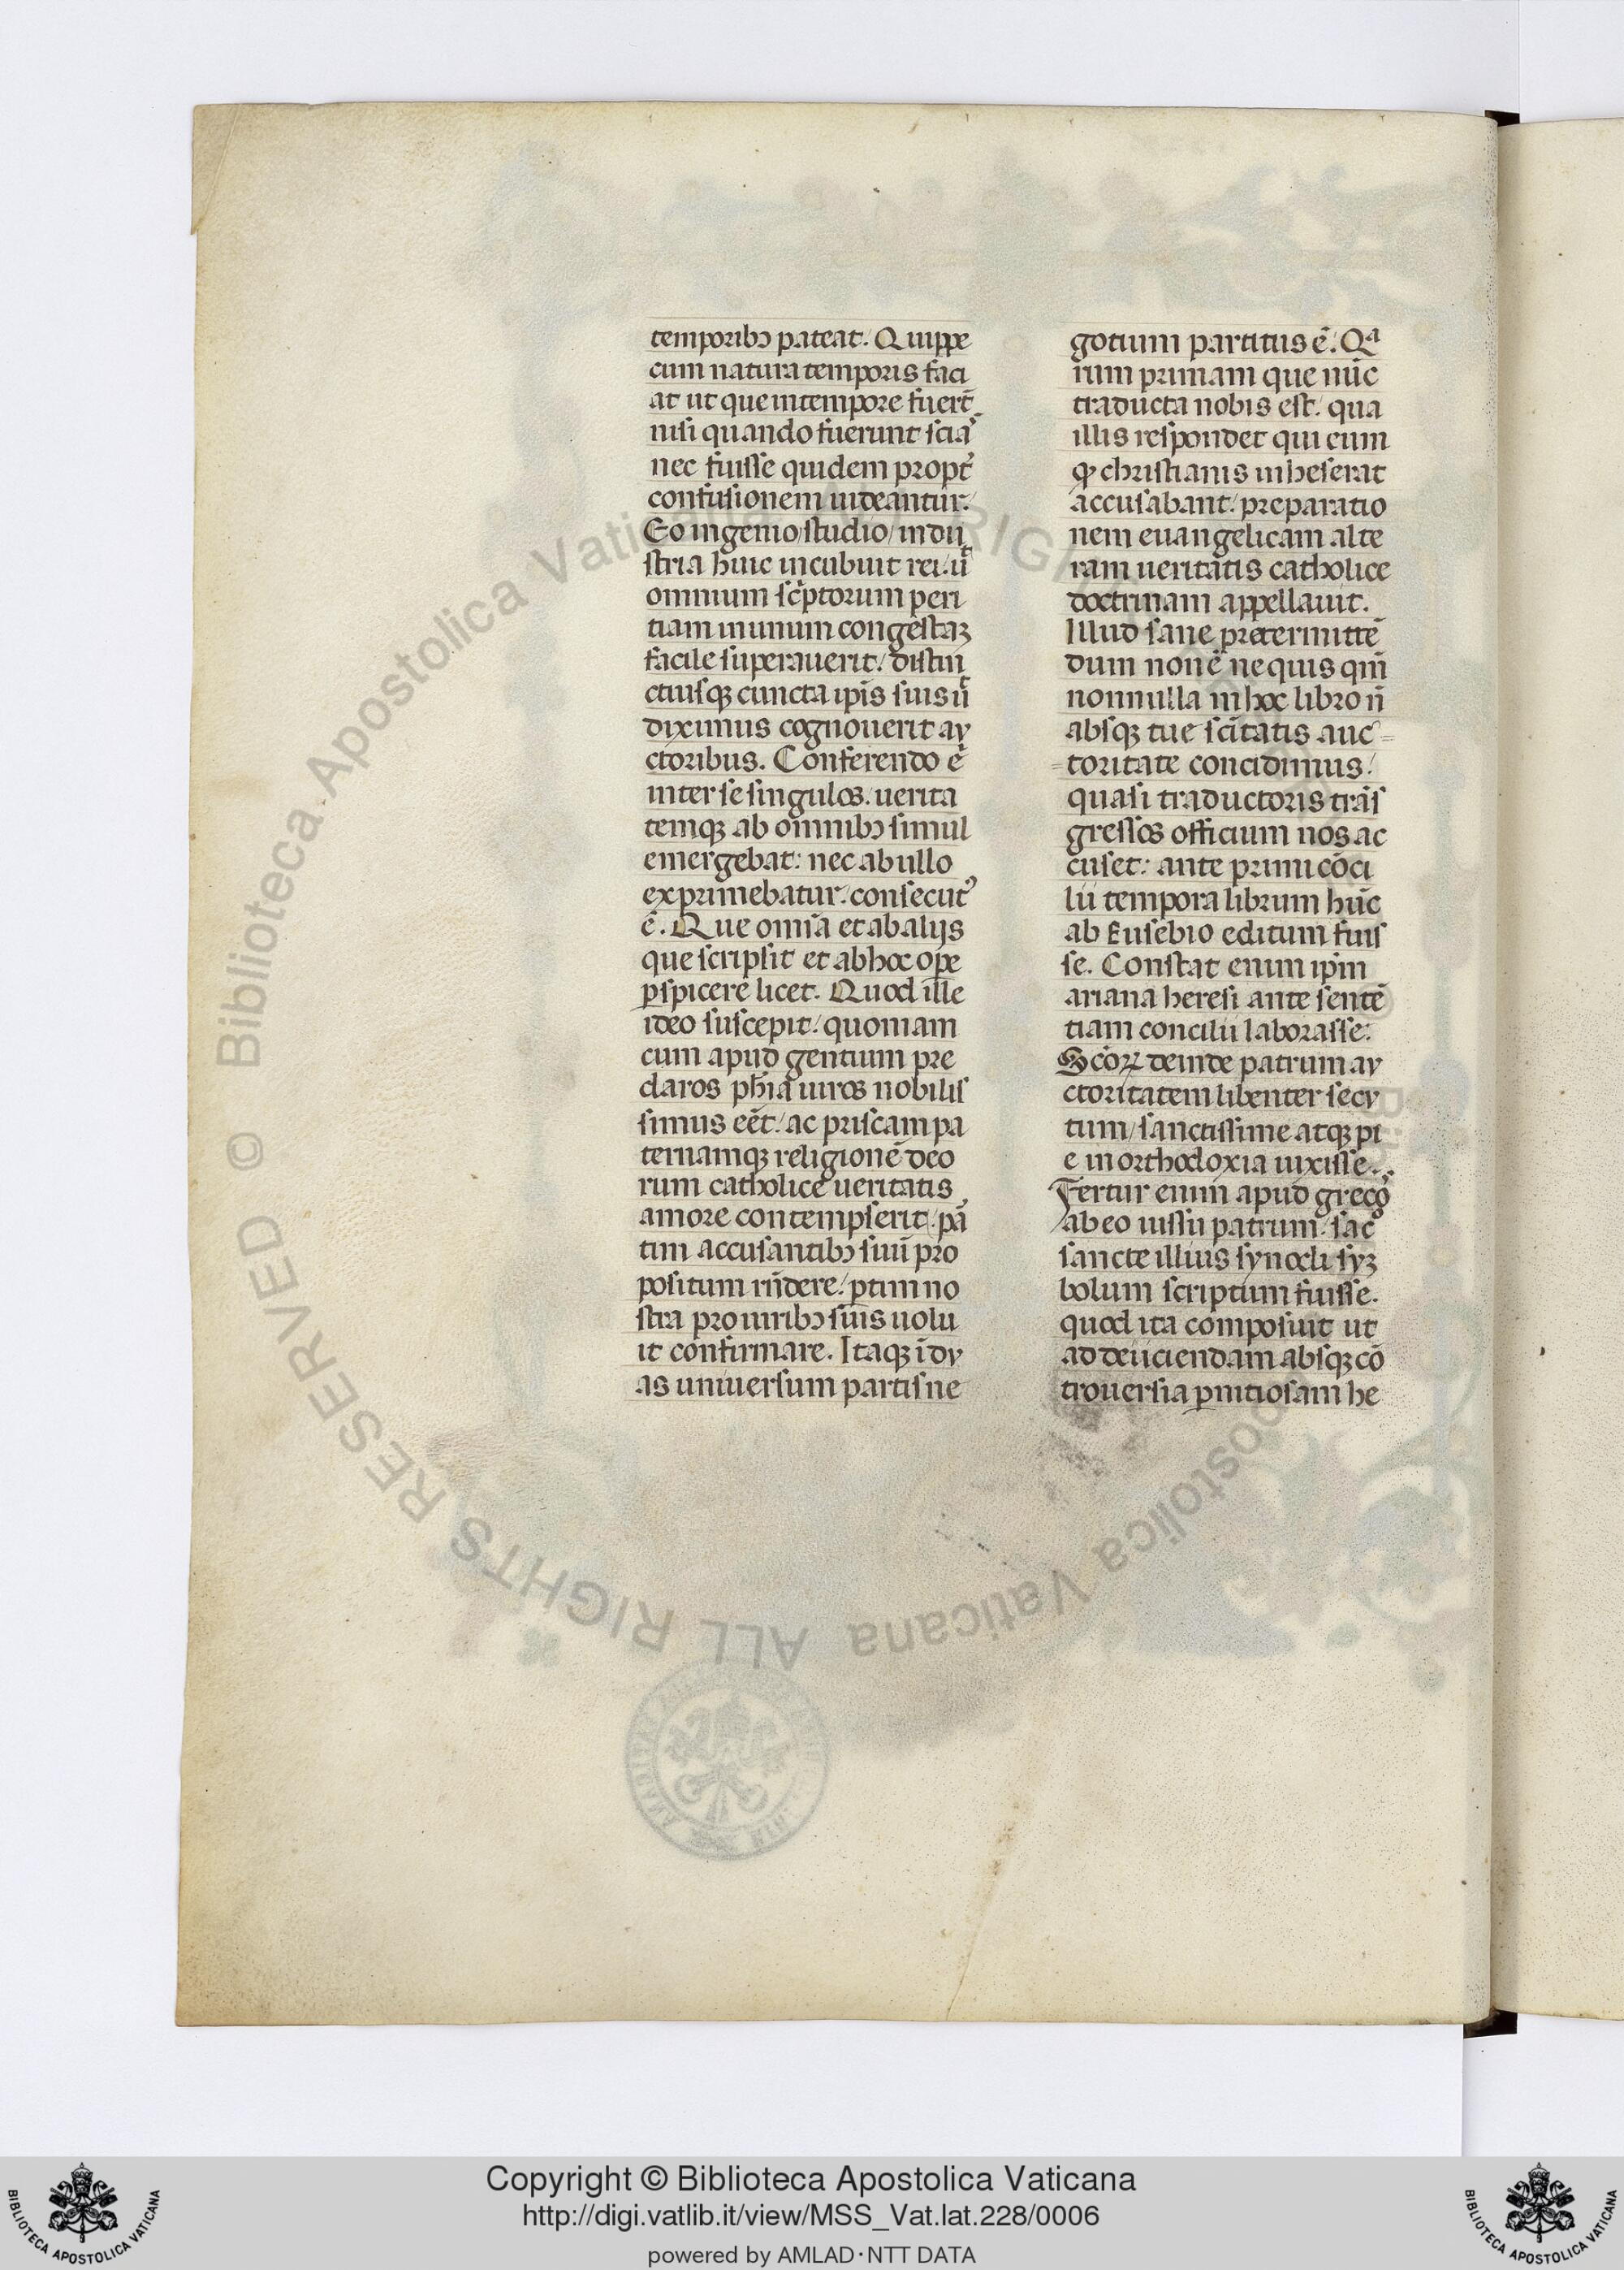 temporibꝫ pateat. Quippe
cum natura temporis faci
at ut que in tempore fuerт̄
nisi quando fuerunt scias
nec fuisse quidem propt̄
confusionem uideantur.
Eo ingenio/studio/indu
stria huic incubuit rei. ut
omnium sc̄ptorum peri
tiam in unum congestaꝫ
facile superauerit. distin
ctiusqꝫ cuncta ip̄is suis ut
diximus cognouerit au
ctoribus. Conferendo ē
inter se singulos. uerita
temqꝫ ab omnibꝫ simul
emergebat: nec ab ullo
exprimebatur. consecut᾽
ē. Que om̄ia et ab alijs
que scripsit et ab hoc ope
ꝑspicere licet. Quod ille
ideo suscepit. quoniam
cum apud gentium pre
claros ph̄ia uiros nobilis
simus eēt. ac priscam pa
ternamqꝫ religionē deo
rum catholice ueritatis
amore contempserit. pa
tim accusantibꝫ suū pro
positum rn̄dere. ꝑtim no
stra pro uiribꝫ suis uolu
it confirmare. Itaqꝫ ī du
as uniuersum partis ne
gotium partitus ē. Qa
rum primam que nūc
traducta nobis est. qua
illis respondet qui eum
ꝙ christianis inheserat
accusabant. preparatio
nem euangelicam alte
ram ueritatis catholice
doctrinam appellauit.
Illud sane pretermittē
dum non ē ne quis qm̄
nonnulla in hoc libro n̄
absqꝫ tue sc̄itatis auc=
=toritate concidimus.
quasi traductoris trās
gressos officium nos ac
cuset: ante primi cōci
lii tempora librum hūc
ab Eusebio editum fuis
se. Constat enim ip̄m
ariana heresi ante sentē
tiam concilii laborasse:
Scōꝝ deinde patrum au
ctoritatem libenter secu
tum/sanctissime atqꝫ pi
e in orthodoxia uixisse.
Fertur enim apud grecos
ab eo iussu patrum. sac
sancte illius synodi syꝫ
bolum scriptum fuisse.
quod ita composuit ut
ad deiiciendam absqꝫ cō
trouersia ꝑnitiosam he
© Biblioteca Apostolica Vaticana ALL RIGHTS RESERVED
Copyright © Biblioteca Apostolica Vaticana
http://digi.vatlib.it/view/MSS_Vat.lat.228/0006
powered by AMLAD·NTT DATA
BIBLIOTECA APOSTOLICA VATICANA
BIBLIOTECA APOSTOLICA VATICANA